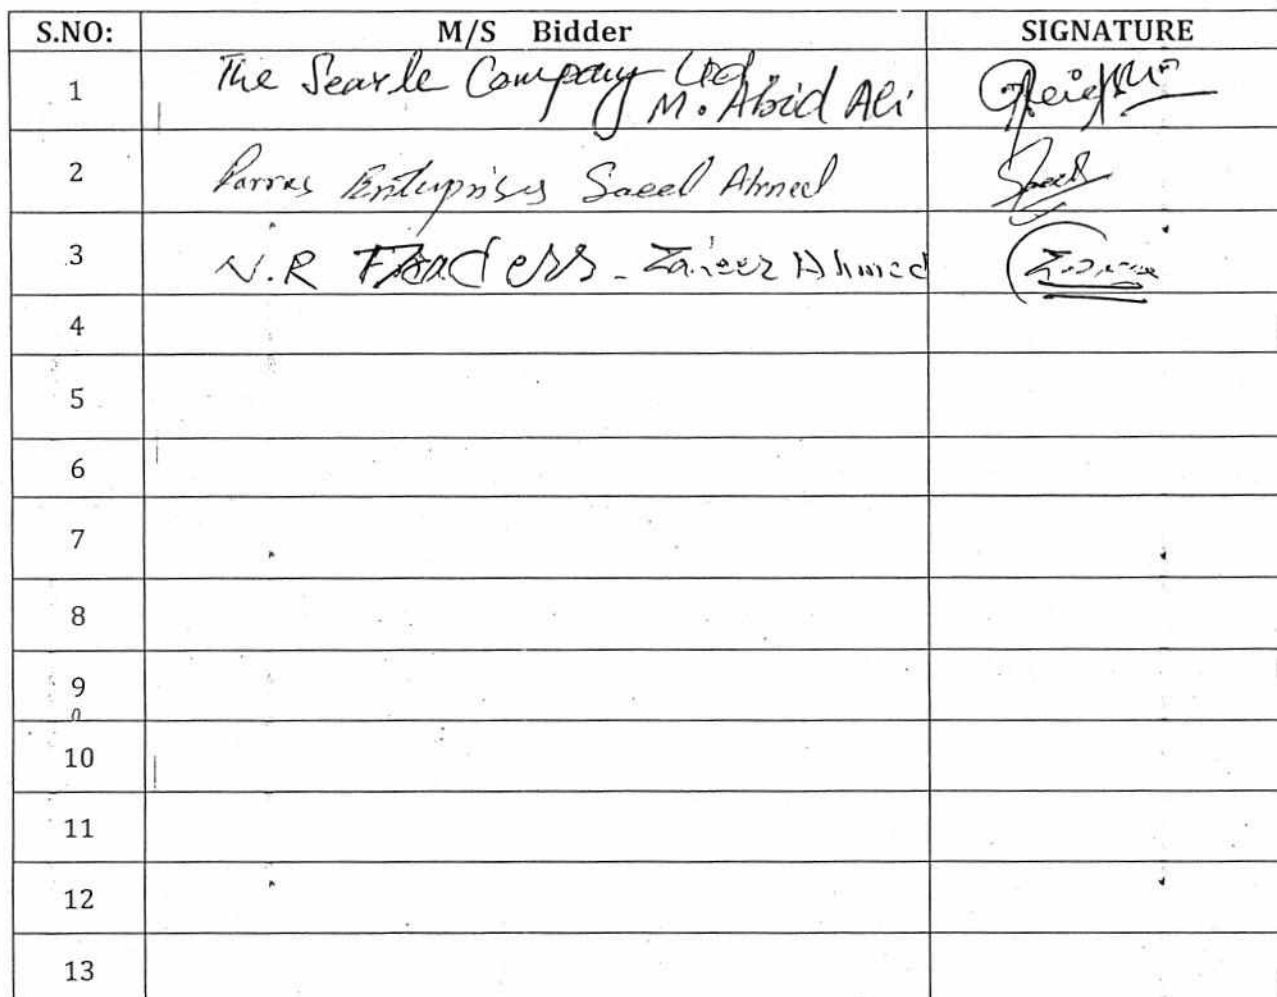 S.NO: M/S Bidder SIGNATURE
1 The Searle Company Ltd
M. Abid Ali
2 Parras Enterprises Saeed Ahmed
3 N.R Traders - Ahmed
4
5
6
7
8
9
10
11
12
13